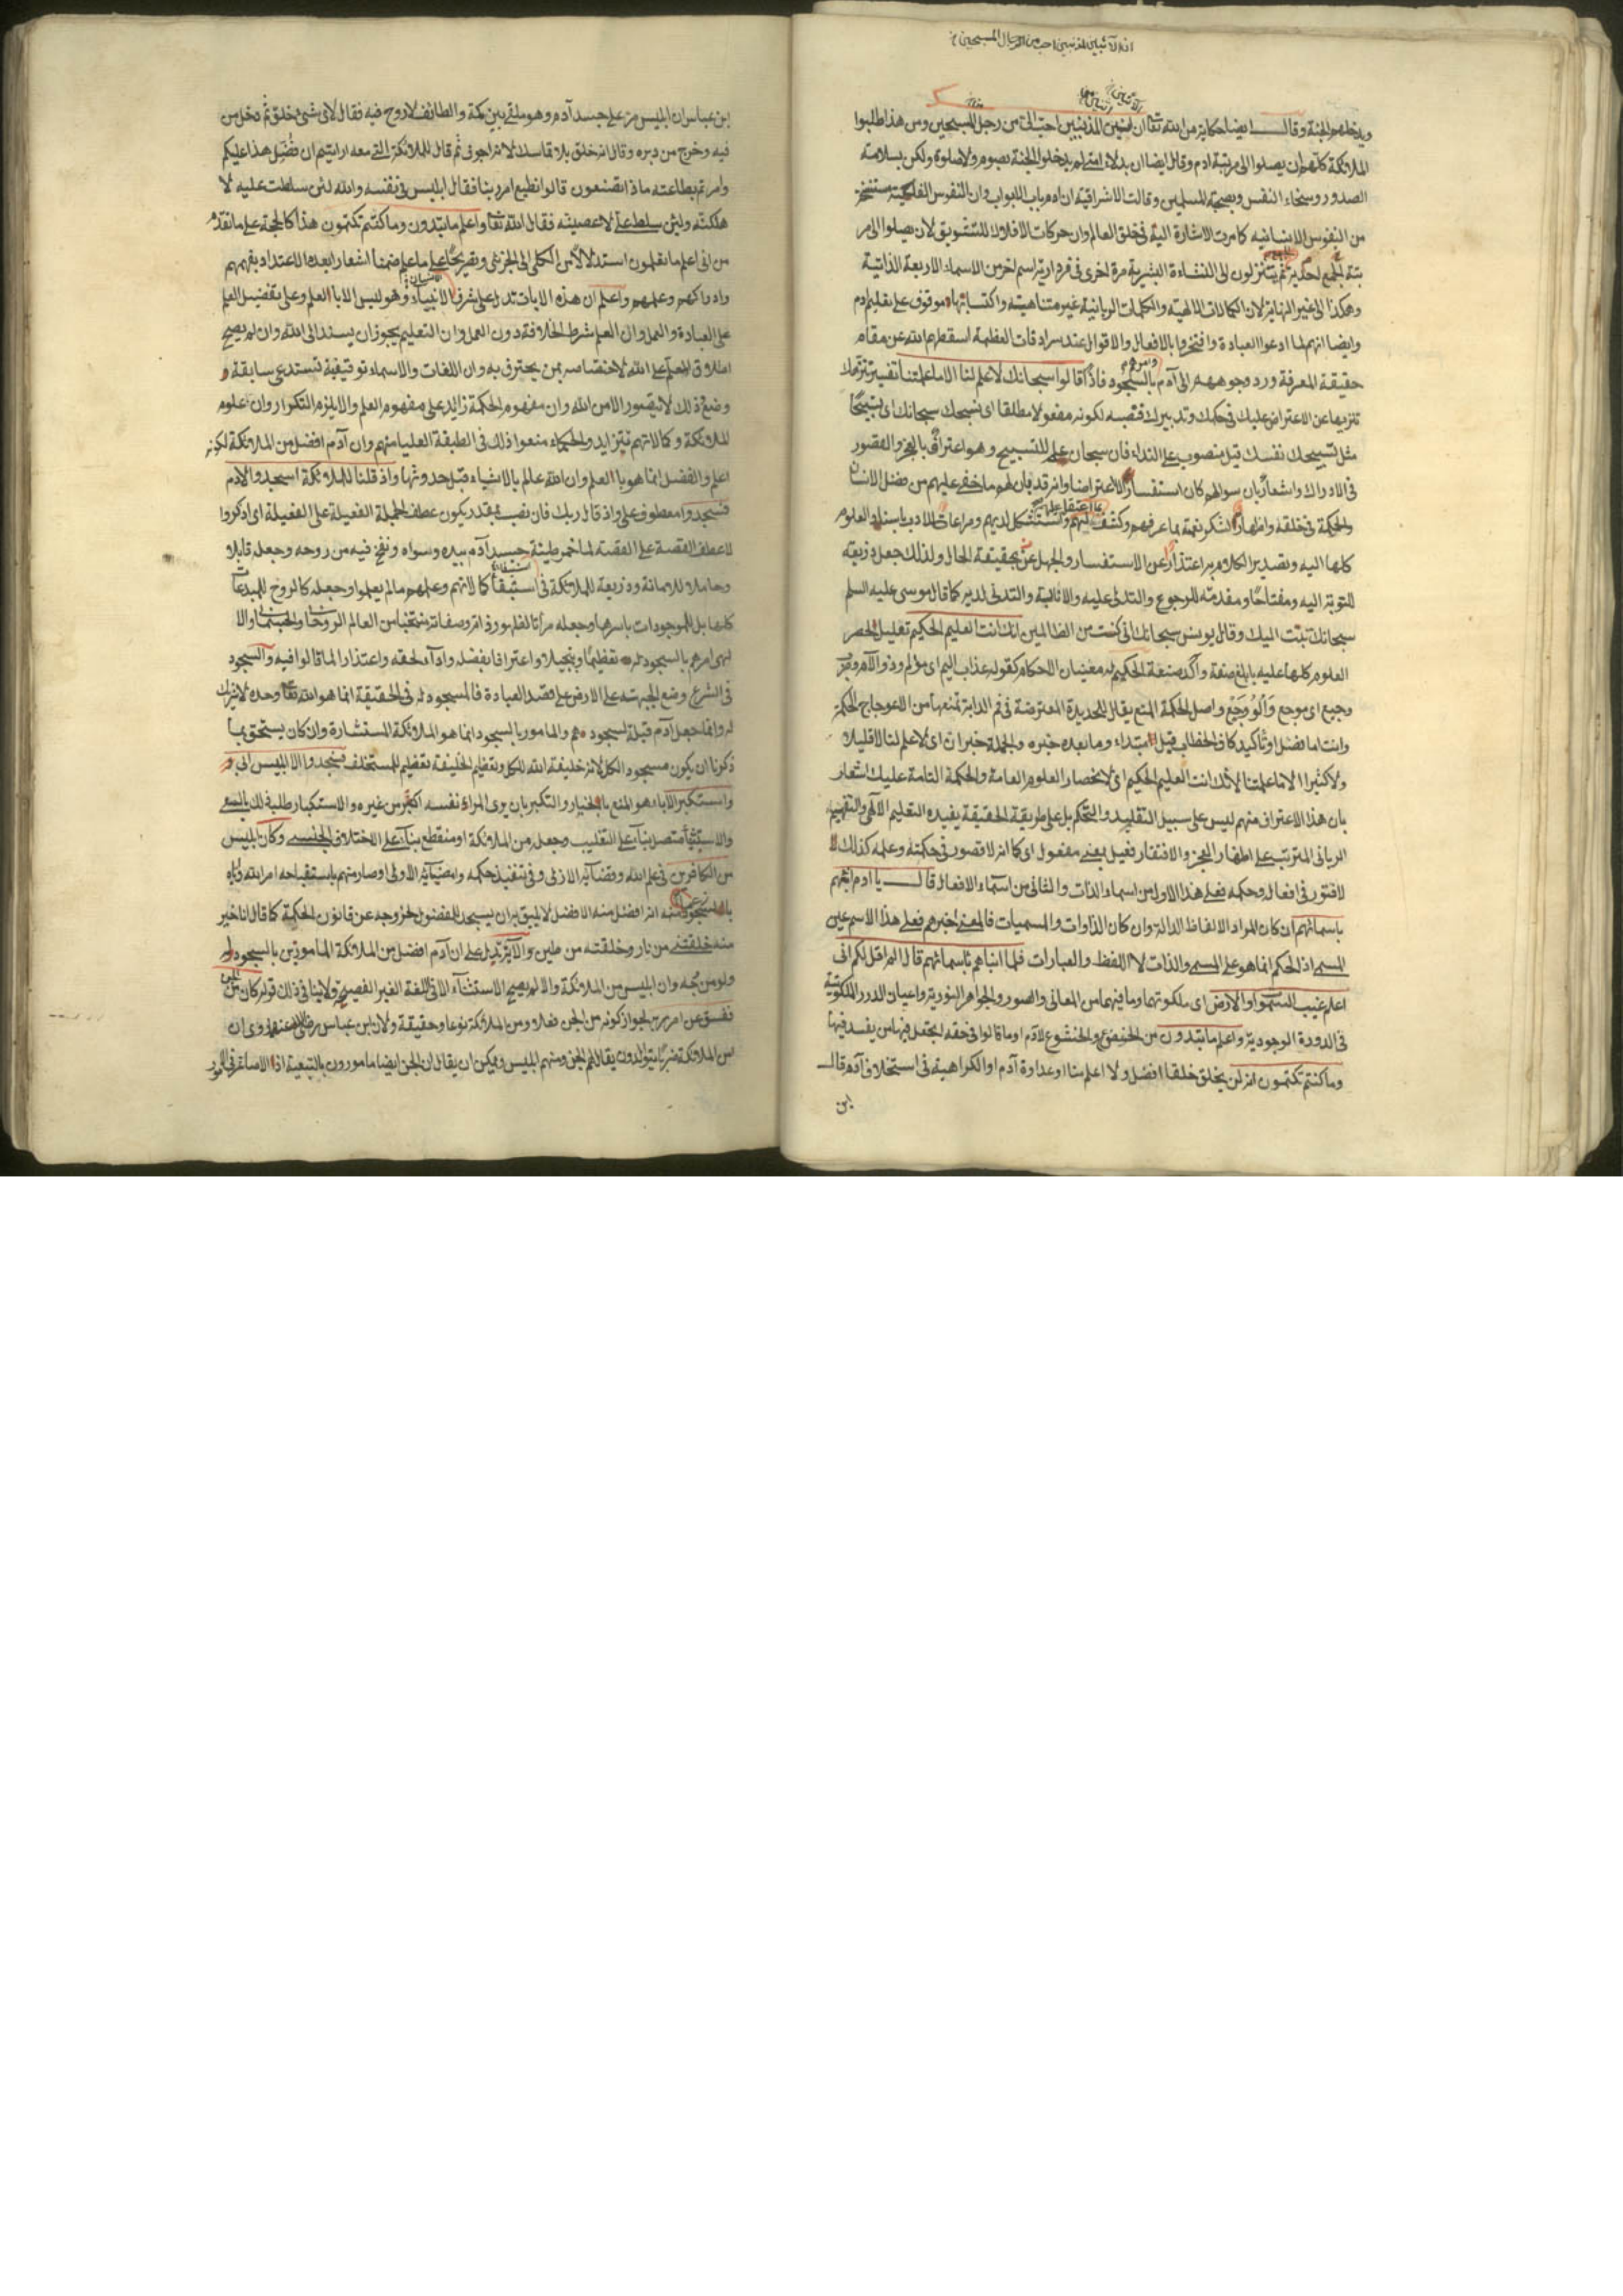 انين المذنبين احب من المسبحين
ويدخلهم الجنة وقال ايضا حكاية من الله تعالى ان انين المذنبين احب الى من زجل المسبحين ومن هذا طلبوا
الملائكة كلهم ان يصلوا الى مرتبة ادم وقال ايضا ان بدلاء امتى لم يدخلوا الجنة بصوم ولا صلوة ولكن بسلامة
الصدور وسخاء النفس ونصيحة للمسلمين وقالت الاشراقية ان ادم باب الابواب وان النفوس الفلكية
من النفوس الانسانيه كما مرت الاشارة اليه فى خلق العالم وان حركات الافلاك للتشويق لان يصلوا الى مر
تبة الجمع ثم يتنزلون الى النشاءة البشرية مرة اخرى فى فردارية اسم اخر من الاسماء الاربعة الذاتية
وهكذا الى غير النهاية لان الكمالات الالهية والكلمات الربانية غير متناهية واكتسابها موقوف على تعليم ادم
وايضا انهم لما ادعوا العبادة وافتخروا بالافعال والاقوال عند سرادقات العظمة اسقطهم الله عن مقام
حقيقة المعرفة ورد وجوههم الى آدم وامرهم بالسجود فاذا قالوا سبحانك لا علم لنا الا ما علمتنا
تنزيها عن الاعتراض عليك فى حكمك وتدبيرك فنصبه لكونه مفعولا مطلقا اى نسبحك سبحانك اى تسبيحا
مثل تسبيحك نفسك قيل منصوب على النداء فان سبحان علم للتسبيح وهو اعتراف بالعجز والقصور
فى الادراك واشعار بان سوالهم كان استفسارا لا اعتراضا وانه قد بان لهم ما خفى عليهم من فضل الانسان
والحكمة فى خلقه واظهار لشكر نعمة بما عرفهم وكشف لهم ما اعتقل عليهم واستشكل لديهم ومراعات للادب باسناد العلوم
كلها اليه وتصدير الكلام به اعتذار عن الاستفسار والجهل عن بحقيقة الحال ولذلك جعل ذريعة
للتوبة اليه ومفتاحا ومقدمة للرجوع والتدلى عليه والانابة والتدلى لديه كما قال موسى عليه السلم
سبحانك تبت اليك وقال يونس سبحانك انى كنت من الظالمين انك انت العليم الحكيم تعليل لحصر
العلوم كلها عليه بابلغ صفة واكد صنعة الحكيم له معنيان الاحكام كقوله عذاب اليم اى مؤلم وذو الآلام وضرب
وجيع اى موجع وذو وجع واصل الحكمة المنع يقال للحديدة المعترضة فى فم الدابة تمنعها من الاعوجاج الحكمة
وانت اما فصل او تأكيد كاف الخطاب قيل ابتداء وما بعده خبره والجملة خبر ان اى لا علم لنا لا قليلا
ولا كثيرا الا ما علمتنا لانك انت العليم الحكيم اى لانحصار العلوم العامة والحكمة التامة عليك اشعار
بان هذا الاعتراف منهم ليس على سبيل التقليد والتحكم بل على طريقة الحقيقة يفيده التعليم الالهى والتفهيم
الربانى المترتب على اظهار العجز والافتقار فعيل بمعنى مفعول اى كما انه لا قصور فى حكمته وعلمه كذلك لا
لافتور فى افعاله وحكمه فعلى هذا الاول من اسماء الذات والثانى من اسماء الافعال قال يا ادم انبئهم
باسمائهم ان كان المراد الالفاظ الدالة وان كان الذوات والمسميات فالمعنى اخبرهم فعلى هذا الاسم عين
المسمى اذ الحكم انما هو على المسمى والذات لا اللفظ والعبارات فلما انباهم باسمائهم قال الم اقل لكم انى
اعلم غيب السموات والارض اى ملكوتهما وما فيهما من المعانى والصور والجواهر النورية واعيان الدرر الملكوتية
فى الدورة الوجودية واعلم ما تبدون من الخضوع والخشوع لآدم او ما قالوا فى حقه اتجعل فيها من يفسد فيها
وما كنتم تكتمون انه لن يخلق خلقا افضل ولا اعلم منا او عداوة آدم او الكراهية فى استخلاف آدم قال
ابن
ابن عباس ان ابليس مر على جسد آدم وهو ملقى بين مكة والطائف لا روح فيه فقال لاى شئ خلق ثم دخل من
فيه وخرج من دبره وقال انه خلق بلا تماسك لانه اجوف ثم قال للملائكة التى معه ارايتم ان فضل هذا عليكم
وامرتم بطاعته ماذا تصنعون قالوا نطيع امر ربنا فقال ابليس فى نفسه والله لئن سلطت عليه لا
هلكنه ولئن سلط على لاعصينه فقال الله تعالى واعلم ما تبدون وما كنتم تكتمون هذا كالحجة على ما تقدم
من انى اعلم ما تعلمون استدلالا من الكلى الى الجزئى وتصريحا على ما علم ضمنا اشعارا بعدم الاعتداد بفهمهم
وادراكهم وعلمهم واعلم ان هذه الايات تدل على شرف الانسان الانبياء وهو ليس الا بالعلم وعلى تفضيل العلم
على العبادة والعمل وان العلم شرط الخلافة دون العمل وان التعليم يجوز ان يسند الى الله وان لم يصح
اطلاق المعلم على الله لاختصاصه بمن يحترف به وان اللغات والاسماء توقيفية تستدعى سابقة و
وضع ذلك لا يتصور الا من الله وان مفهوم الحكمة زائد على مفهوم العلم والا يلزم التكرار وان علوم
الملائكة وكمالاتهم تتزايد والحكماء منعوا ذلك فى الطبقة العليا منهم وان آدم افضل من الملائكة لكونه
اعلم والفضل انما هو بالعلم وان الله عالم بالاشياء قبل حدوثها واذ قلنا للملائكة اسجدوا لادم
فسجدوا معطوف على واذ قال ربك فان نصب بمقدر يكون عطف الجملة الفعيلة على الفعيلة اى اذكروا
لا عطف القصة على القصة لما خمر طينة جسد آدم بيده وسواه ونفخ فيه من روحه وجعله قابلا
وحاملا للامانة وذريعة للملائكة فى استيفاء كمالاتهم وعلمهم مالم يعلموا وجعله كالروح للمبدعات
كلها بل للموجودات باسرها وجعله مرآة لظهور ذاته وصفاته منتخبا من العالم الروحانى والجسمانى والا
لهى امرهم بالسجود له تعظيما وتبجيلا واعترافا بفضله واداء لحقه واعتذارا لما قالوا فيه والسجود
فى الشرع وضع الجبهة على الارض على قصد العبادة فالمسجود له فى الحقيقة انما هو الله تعالى وحده لا شريك
له وانما جعل آدم قبلة لسجودهم والمامور بالسجود انما هو الملائكة المستشارة وان كان يستحق بما
ذكرنا ان يكون مسجود الكل لانه خليفة الله للكل وتعظيم الخليفة تعظيم للمستخلف فسجدوا الا ابليس ابى و
واستكبر الاباء هو المنع بالاختيار والتكبر بان يرى المراء نفسه اكبر من غيره والاستكبار طلب ذلك بالتشبع
والاستثناء متصل بناء على التغليب وجعله من الملائكة او منقطع بناء على الاختلاف الجنسى وكان ابليس
من الكافرين فى علم الله وقضائه الازلى وفى تنفيذ حكمه وامضائه الاولى او صار منهم باستقباحه امر الله
بالسجود منه انه افضل منه الافضل لا يليق به ان يسجد للمفضول لخروجه عن قانون الحكمة كما قال انا خير
منه خلقتنى من نار وخلقته من طين والآية تدل على ان آدم افضل من الملائكة المامورين بالسجود له
ولو من وجه وان ابليس من الملائكة والا لم يصح الاستثناء الا فى اللغة الغير الفصيح ولا ينافى ذلك قوله كان من الجن
ففسق عن امر ربه لجواز كونه من الجن فعلا ومن الملائكة نوعا وحقيقة ولان ابن عباس رضى الله عنهما روى ان
من الملائكة ضربا يتوالدون يقال لهم الجن ومنهم ابليس ويمكن ان يقال ان الجن ايضا مامورون بالتبعية